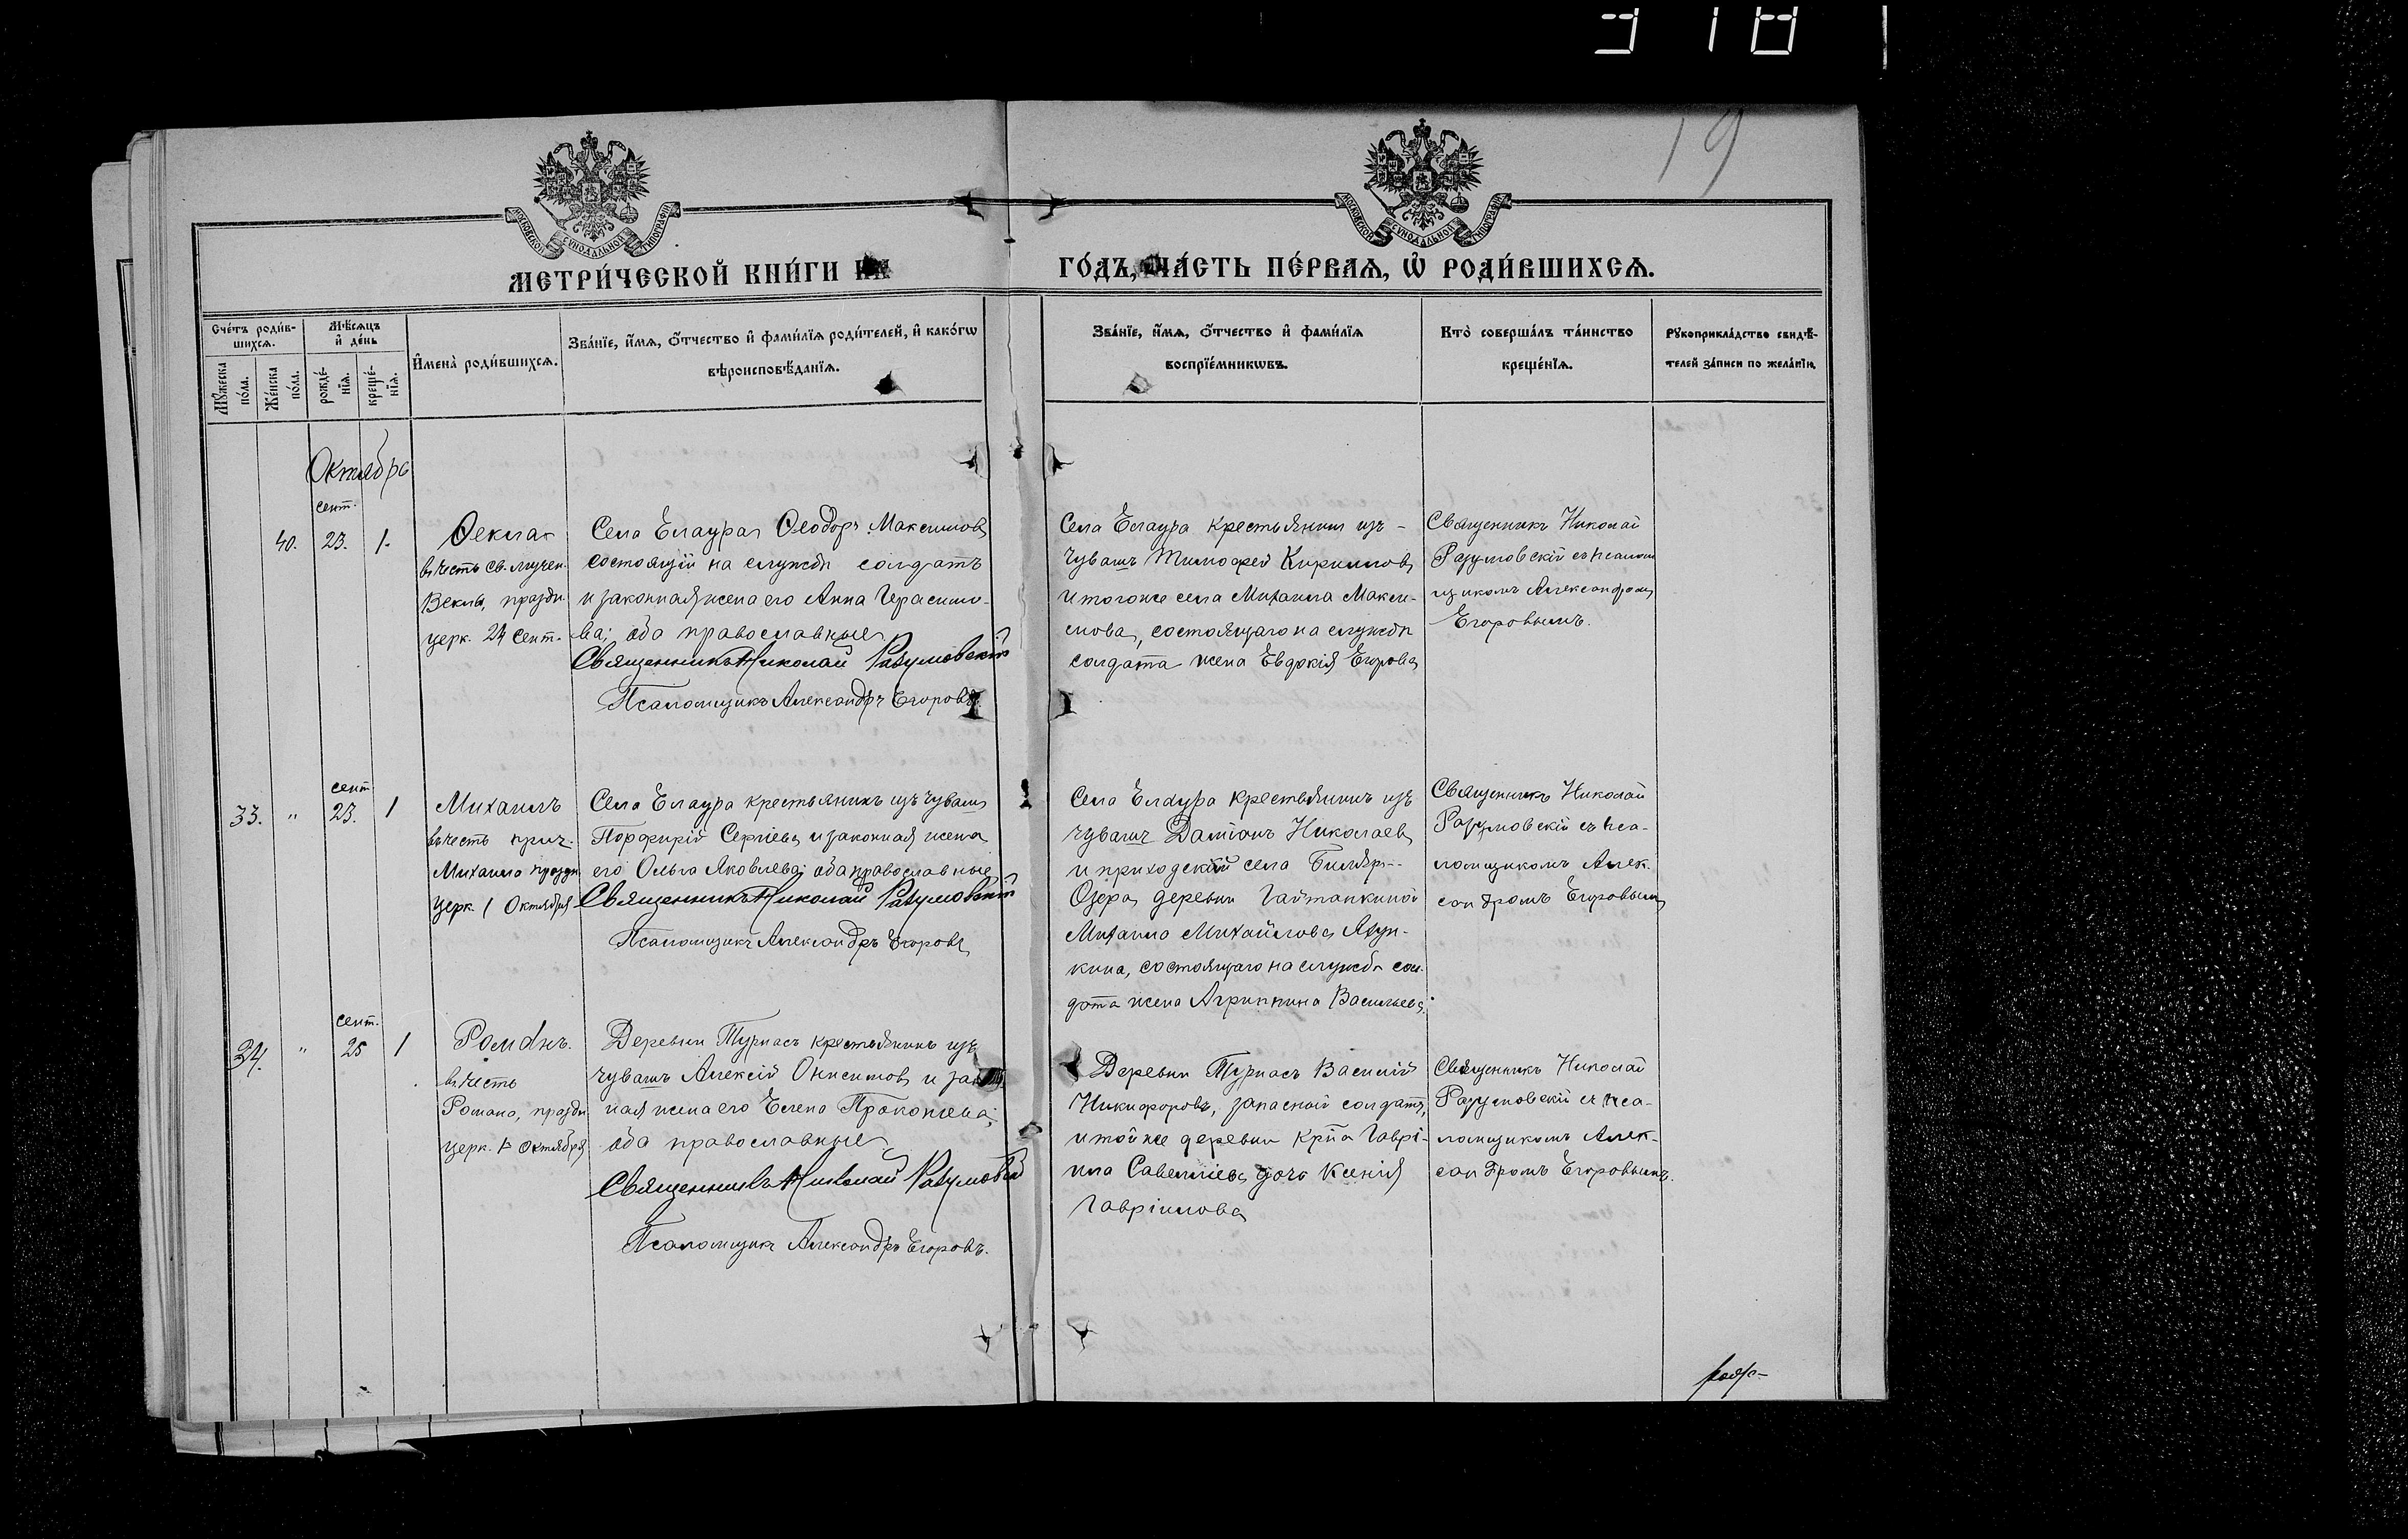 19
МОСКОВСКОЙ СѴНОДАЛЬНОЙ ТИПОГРАФІИ
МОСКОВСКОЙ СѴНОДАЛЬНОЙ ТИПОГРАФІИ
МЕТРИ́ЧЕСКОЙ КНИ́ГИ НА ГО́ДЪ, ЧА́СТЬ ПЕ́РВАѦ, Ѡ РОДИ́ВШИХСѦ.
Сче́тъ роди́в-
шихсѧ.
Мꙋ́жеска
по́ла.
Же́нска
по́ла.
Мѣ́сѧцъ
и де́нь
рожде́-
нїѧ.
креще́-
нїѧ.
И҆мена̀ роди́вшихсѧ.
Зва́нїе, и҆́мѧ, ѻ҆́тчество и҆ фами́лїѧ роди́телей, и҆ како́гѡ
вѣроисповѣ́данїѧ.
Зва́нїе, и҆́мѧ, ѻ҆́тчество и҆ фами́лїѧ
воспрїе́мникѡвъ.
Кто̀ соверша́лъ та́инство
креще́нїѧ.
Рꙋкоприкла́дство свидѣ́-
телей за́писи по жела́нїю.
Октябрь
сент.
40. 23. 1.
Ѳекла
въ честь св. мучен.
Ѳеклы, праздн.
церк. 24 сент.
Села Елаура Ѳеодоръ Максимовъ
состоящій на службѣ солдатъ
и законная жена его Анна Герасимо-
ва; оба православные
Священникъ Николай Разумовскій
Псаломщикъ Александръ Егоровъ.
Села Елаура крестьянинъ изъ -
чувашъ Тимофей Кирилловъ
и тогоже села Михаила Макси-
мова, состоящаго на службѣ
солдата жена Евдокія Егорова
Священникъ Николай
Разумовскій съ псалом
щикомъ Александромъ
Егоровымъ.
сент
33. " 23. 1
Михаилъ
въ честь
Михаила праздн.
церк. 1 Октября
Села Елаура крестьянинъ изъ чувашъ
Порфирій Сергіевъ и законная жена
его Ольга Яковлева; оба православные
Священникъ Николай Разумовскій
Псаломщикъ Александръ Егоровъ
Села Елаура крестьянинъ изъ
чувашъ Даміанъ Николаевъ
и приходской села Биляръ--
Озера деревни Гайтанкиной
Михаила Михайлова
состоящаго на службѣ сол-
дата жена Агриппина Васильева.
Священникъ Николай
Разумовскій съ пса-
ломщикомъ Алек-
сандромъ Егоровымъ
сент.
34. " 25 1
Романъ.
въ честь
Романа, праздн
церк. 1 Октября
Деревни Турнасъ крестьянинъ изъ
чувашъ Алексій Онисимовъ и закон.
ная жена его Елена Прокопьева;
оба православные
Священникъ Николай Разумовскій
Псаломщикъ Александръ Егоровъ.
Деревни Турнасъ Василій
Никифоровъ, запасной солдатъ,
и той же деревни крⷭ҇на Гаврі-
ила Савелліева дочь Ксенія
Гавріилова
Священникъ Николай
Разумовскій съ пса-
ломщикомъ Алек-
сандромъ Егоровымъ.